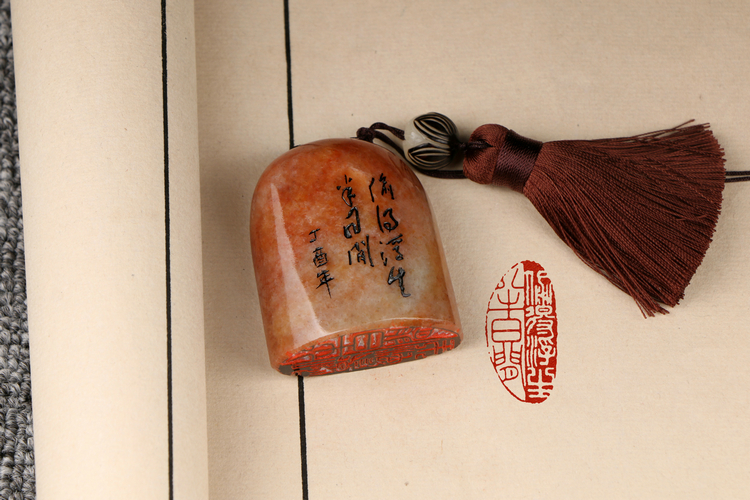 偷得浮生
半日閒
丁酉年
偷得浮生
半日閒